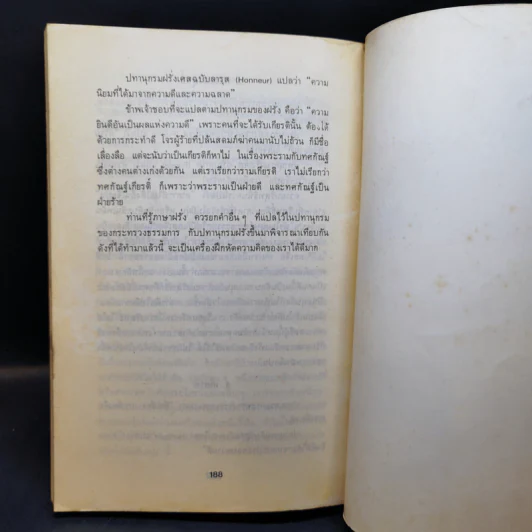 ปทานุกรมฝรั่งเศสฉบับลารุส (Honneur) แปลว่า “ความ
นิยมที่ได้มาจากความดีและความฉลาด”
ข้าพเจ้าชอบที่จะแปลตามปทานุกรมของฝรั่ง คือว่า “ความ
ยินดีอันเป็นผลแห่งความดี” เพราะคนที่จะได้รับเกียรตินั้น ต้องได้
ด้วยการกระทำดี โจรผู้ร้ายที่ปล้นสดมภ์ฆ่าคนมานับไม่ถ้วน ก็มีชื่อ
เลื่องลือ แต่จะนับว่าเป็นเกียรติก็หาไม่ ในเรื่องพระรามกับทศกัณฐ์
ซึ่งต่างคนต่างเก่งด้วยกัน แต่เราเรียกว่ารามเกียรติ เราไม่เรียกว่า
ทศกัณฐ์เกียรติ์ ก็เพราะว่าพระรามเป็นฝ่ายดี และทศกัณฐ์เป็น
ฝ่ายร้าย
ท่านที่รู้ภาษาฝรั่ง ควรยกคำอื่นๆ ที่แปลไว้ในปทานุกรม
ของกระทรวงธรรมการ กับปทานุกรมฝรั่งขึ้นมาพิจารณาเทียบกัน
ดังที่ได้ทำมาแล้วนี้ จะเป็นเครื่องฝึกหัดความคิดของเราได้ดีมาก
168